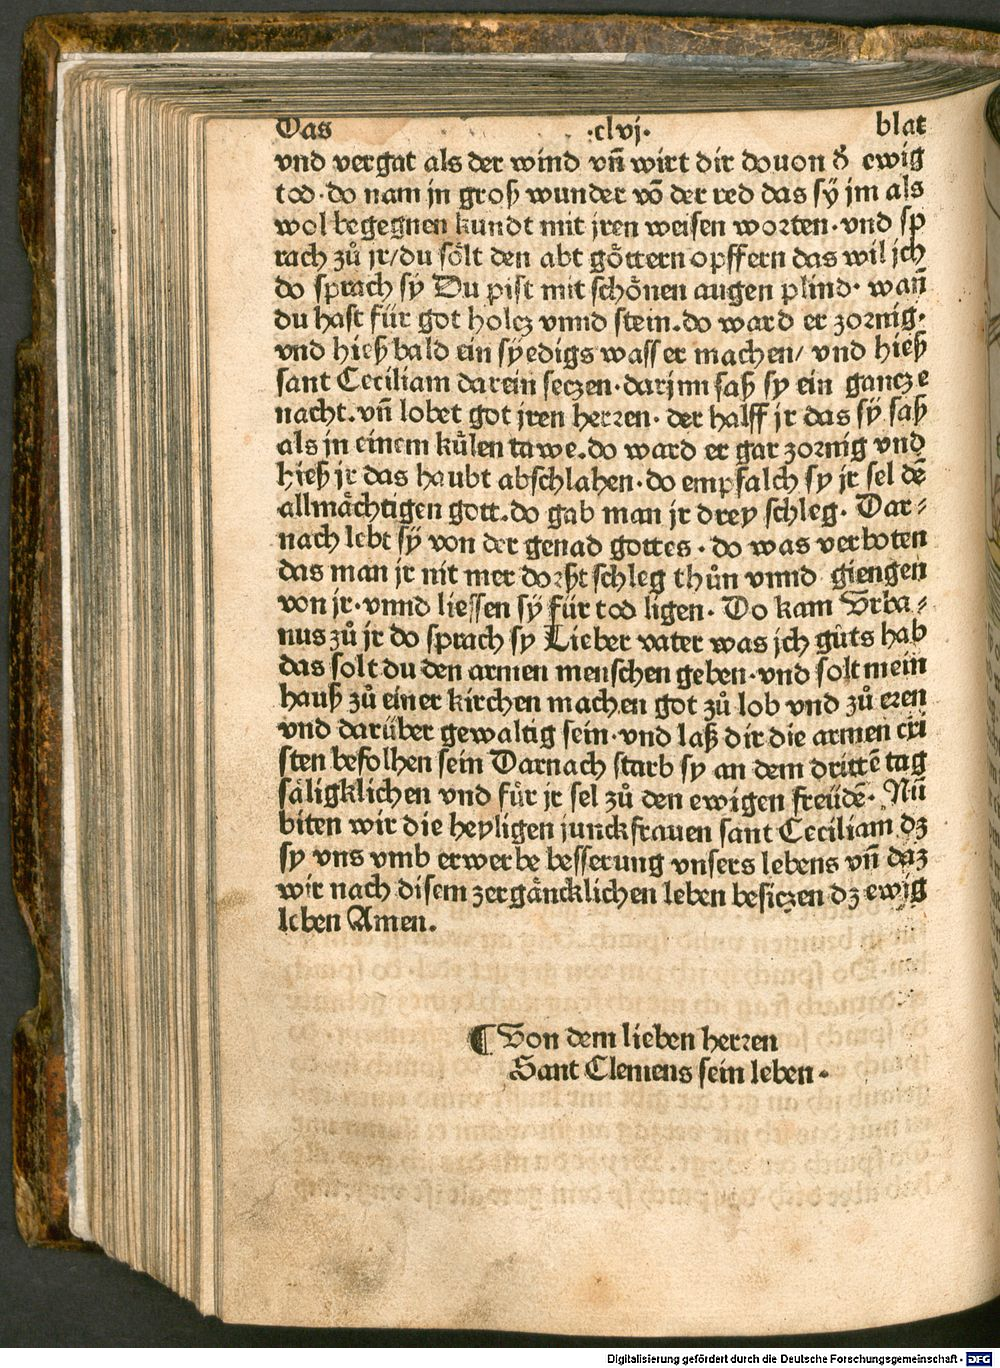 Das .clvj. blat
vnd vergat als der wind vn̄ wirt dir douon d̕ ewig
tod·do nam jn groß wunder vō der red das sÿ jm als
wol begegnen kundt mit jren weisen worten·vnd sp
rach zů jr/du sölt den abt göttern opffern das wil jch
do sprach sÿ Du pist mit schönen augen plind· wañ
du hast für got holcz vnnd stein.do ward er zornig·
vnd hieß bald ein sÿedigs wasser machen/ vnd hieß
sant Ceciliam darein seczen·darjnn saß sy ein gancze
nacht.vn̄ lobet got jren herren· der halff jr das sÿ saß
als in einem kůlen tawe.do ward er gar zornig vnd
hieß jr das haubt abschlahen·do empfalch sy jr sel dē
allmächtigen gott.do gab man jr drey schleg. Dar⸗
nach lebt sÿ von der genad gottes · do was verboten
das man jr nit mer dorßt schleg thůn vnnd giengen
von jr·vnnd liessen sÿ für tod ligen· Do kam Vrba⸗
nus zů jr do sprach sy Lieber vater was jch gůts hab
das solt du den armen menschen geben·vnd solt mein
hauß zů einer kirchen machen got zů lob vnd zů eren
vnd darüber gewaltig sein·vnd laß dir die armen cri
sten befolhen sein Darnach starb sy an dem drittē tag
säligklichen vnd fůr jr sel zů den ewigen freüdē· Nū
biten wir die heyligen junckfrauen sant Ceciliam dz
sy vns vmb erwerbe besserung vnsers lebens vn̄ daz
wir nach disem zergäncklichen leben besiczen dz ewig
leben Amen.
¶ Von dem lieben herren
Sant Clemens sein leben·
Digitalisierung gefördert durch die Deutsche Forschungsgemeinschaft - DFG